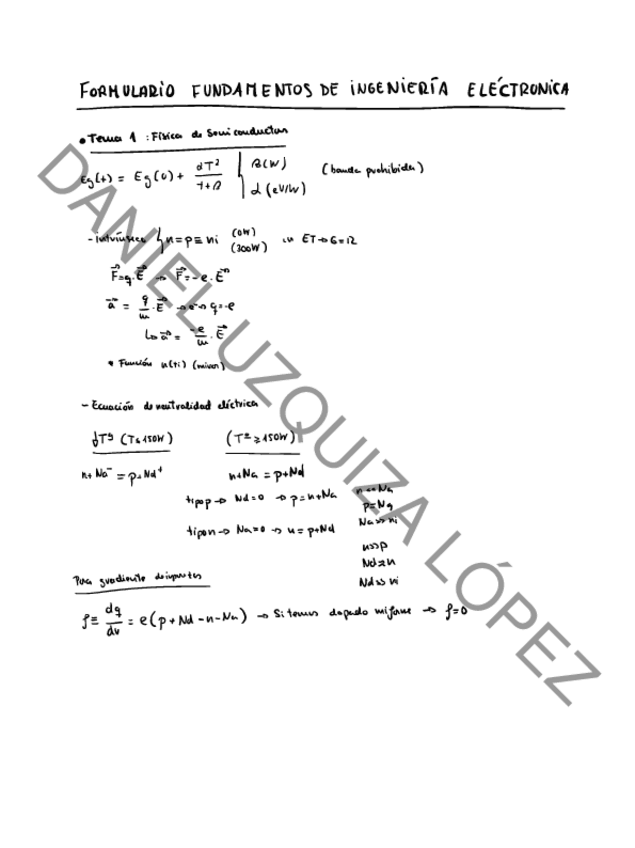 FORMULARIO FUNDAMENTOS DE INGENIERÍA ELÉCTRONICA
• Tema 1 : Física de Semiconductores
Eg(t) = Eg(0) + αT² / T+β { β(K) (banda prohibida)
α (eV/K)
- Intrínseco { n = p ≡ ni (0K) (300K) ET → G=R
F=q·E → F=-e·E
a = q/m · E → e⁻ → q=-e
↳ a = -e/m · E
• Función n(ti) (mirar)
- Ecuación de neutralidad eléctrica
↓Tª (T≤150K) (Tª ≥ 150K)
n+Na⁻ = p+Nd⁺ n+Na = p+Nd
tipo p → Nd=0 → p=n+Na
n<<Na
p=Na
Na>>ni
tipo n → Na=0 → n=p+Nd
n>>p
Nd≈n
Nd>>ni
Para gradiente de impurezas
ρ ≡ dq/dv = e(p+Nd-n-Na) → Si temos dopado uniforme → ρ=0
DANIEL UZQUIZA LÓPEZ